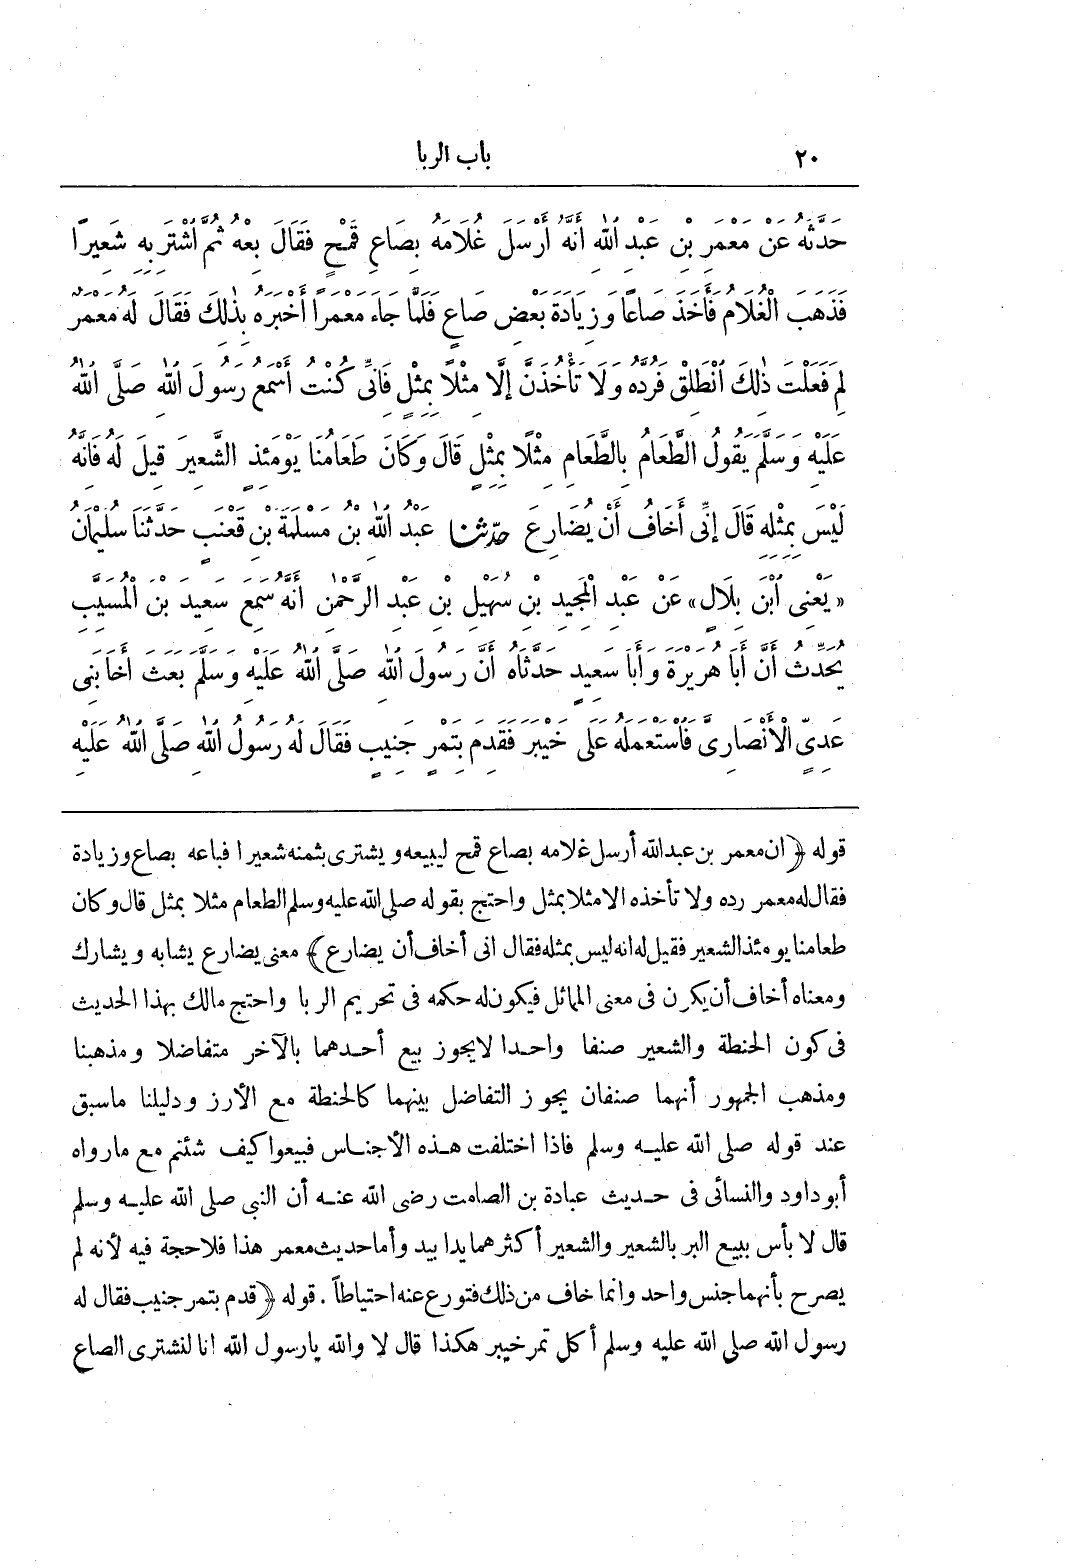 ٢٠ باب الربا
حَدَّثَهُ عَنْ مَعْمَرِ بْنِ عَبْدِ اللهِ أَنَّهُ أَرْسَلَ غُلَامَهُ بِصَاعِ قَمْحٍ فَقَالَ بِعْهُ ثُمَّ اشْتَرِ بِهِ شَعِيرًا
فَذَهَبَ الْغُلَامُ فَأَخَذَ صَاعًا وَزِيَادَةَ بَعْضِ صَاعٍ فَلَمَّا جَاءَ مَعْمَرًا أَخْبَرَهُ بِذٰلِكَ فَقَالَ لَهُ مَعْمَرٌ
لِمَ فَعَلْتَ ذٰلِكَ انْطَلِقْ فَرُدَّهُ وَلَا تَأْخُذَنَّ إِلَّا مِثْلًا بِمِثْلٍ فَانِّي كُنْتُ أَسْمَعُ رَسُولَ اللهِ صَلَّى اللهُ
عَلَيْهِ وَسَلَّمَ يَقُولُ الطَّعَامُ بِالطَّعَامِ مِثْلًا بِمِثْلٍ قَالَ وَكَانَ طَعَامُنَا يَوْمَئِذٍ الشَّعِيرَ قِيلَ لَهُ فَانَّهُ
لَيْسَ بِمِثْلِهِ قَالَ إِنِّي أَخَافُ أَنْ يُضَارِعَ حدّثنا عَبْدُ اللهِ بْنُ مَسْلَمَةَ بْنِ قَعْنَبٍ حَدَّثَنَا سُلَيْمَانُ
« يَعْنِى ابْنَ بِلَالٍ » عَنْ عَبْدِ الْمَجِيدِ بْنِ سُهَيْلِ بْنِ عَبْدِ الرَّحْمٰنِ أَنَّهُ سَمِعَ سَعِيدَ بْنَ الْمُسَيَّبِ
يُحَدِّثُ أَنَّ أَبَا هُرَيْرَةَ وَأَبَا سَعِيدٍ حَدَّثَاهُ أَنَّ رَسُولَ اللهِ صَلَّى اللهُ عَلَيْهِ وَسَلَّمَ بَعَثَ أَخَا بَنِى
عَدِىٍّ الْأَنْصَارِىَّ فَاسْتَعْمَلَهُ عَلَى خَيْبَرَ فَقَدِمَ بِتَمْرٍ جَنِيبٍ فَقَالَ لَهُ رَسُولُ اللهِ صَلَّى اللهُ عَلَيْهِ
قوله ﴿ان معمر بن عبد الله أرسل غلامه بصاع قمح ليبيعه ويشترى بثمنه شعيرا فباعه بصاع وزيادة
فقال له معمر رده ولا تأخذه الا مثلا بمثل واحتج بقوله صلى الله عليه وسلم الطعام مثلا بمثل قال وكان
طعامنا يومئذ الشعير فقيل له انه ليس بمثله فقال انى أخاف أن يضارع﴾ معنى يضارع يشابه ويشارك
ومعناه أخاف أن يكون فى معنى المماثل فيكون له حكمه فى تحريم الربا واحتج مالك بهذا الحديث
فى كون الحنطة والشعير صنفا واحدا لايجوز بيع أحدهما بالآخر متفاضلا ومذهبنا
ومذهب الجمهور أنهما صنفان يجوز التفاضل بينهما كالحنطة مع الأرز ودليلنا ماسبق
عند قوله صلى الله عليه وسلم فاذا اختلفت هذه الأجناس فبيعوا كيف شئتم مع مارواه
أبو داود والنسائى فى حديث عبادة بن الصامت رضى الله عنه أن النبى صلى الله عليه وسلم
قال لا بأس ببيع البر بالشعير والشعير أكثرهما يدا بيد وأما حديث معمر هذا فلا حجة فيه لأنه لم
يصرح بأنهما جنس واحد وانما خاف من ذلك فتورع عنه احتياطاً . قوله ﴿قدم بتمر جنيب فقال له
رسول الله صلى الله عليه وسلم أكل تمر خيبر هكذا قال لا والله يارسول الله انا لنشترى الصاع